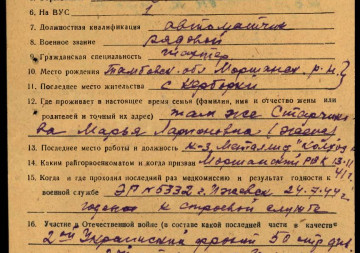 6. На ВУС 1
7. Должностная квалификация автоматчик
8. Военное звание рядовой
9. Гражданская специальность шахтер
10. Место рождения Тамбовск. обл Моршанск. р-н
11. Последнее место жительства с Керборки
12. Где проживает в настоящее время семья (фамилия, имя и отчество жены или
родителей и точный их адрес) там же
ва Марья Ларионовна (жена)
13. Последнее место работы и должность к-з
14. Каким райгорвоенкоматом и когда призван Моршанский РВК 13.11
41 г.
15. Когда и где проходил последний раз медкомиссию и результат годности к
военной службе ЭГ №5332 г. Ижевск 24.7.44 г.
годен к строевой службе
16. Участие в Отечественной войне (в составе какой последней части и в качестве
2ой Украинский фронт 50